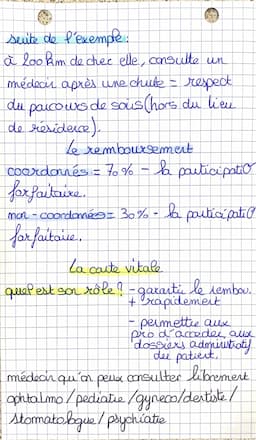 suite de l'exemple :
à 200 km de chez elle, consulte un
médecin après une chute = respect
du parcours de soins (hors du lieu
de résidence).
Le remboursement
coordonnés = 70% - la participatio
forfaitaire.
non-coordonnés = 30% - la participatio
forfaitaire.
La carte vitale
quel est son rôle ? - garantir le rembou.
+ rapidement
- permettre aux
pro d'accéder aux
dossiers administratif
du patient.
médecin qu'on peux consulter librement
ophtalmo / pediatre / gyneco / dentiste /
stomatologue / psychiatre